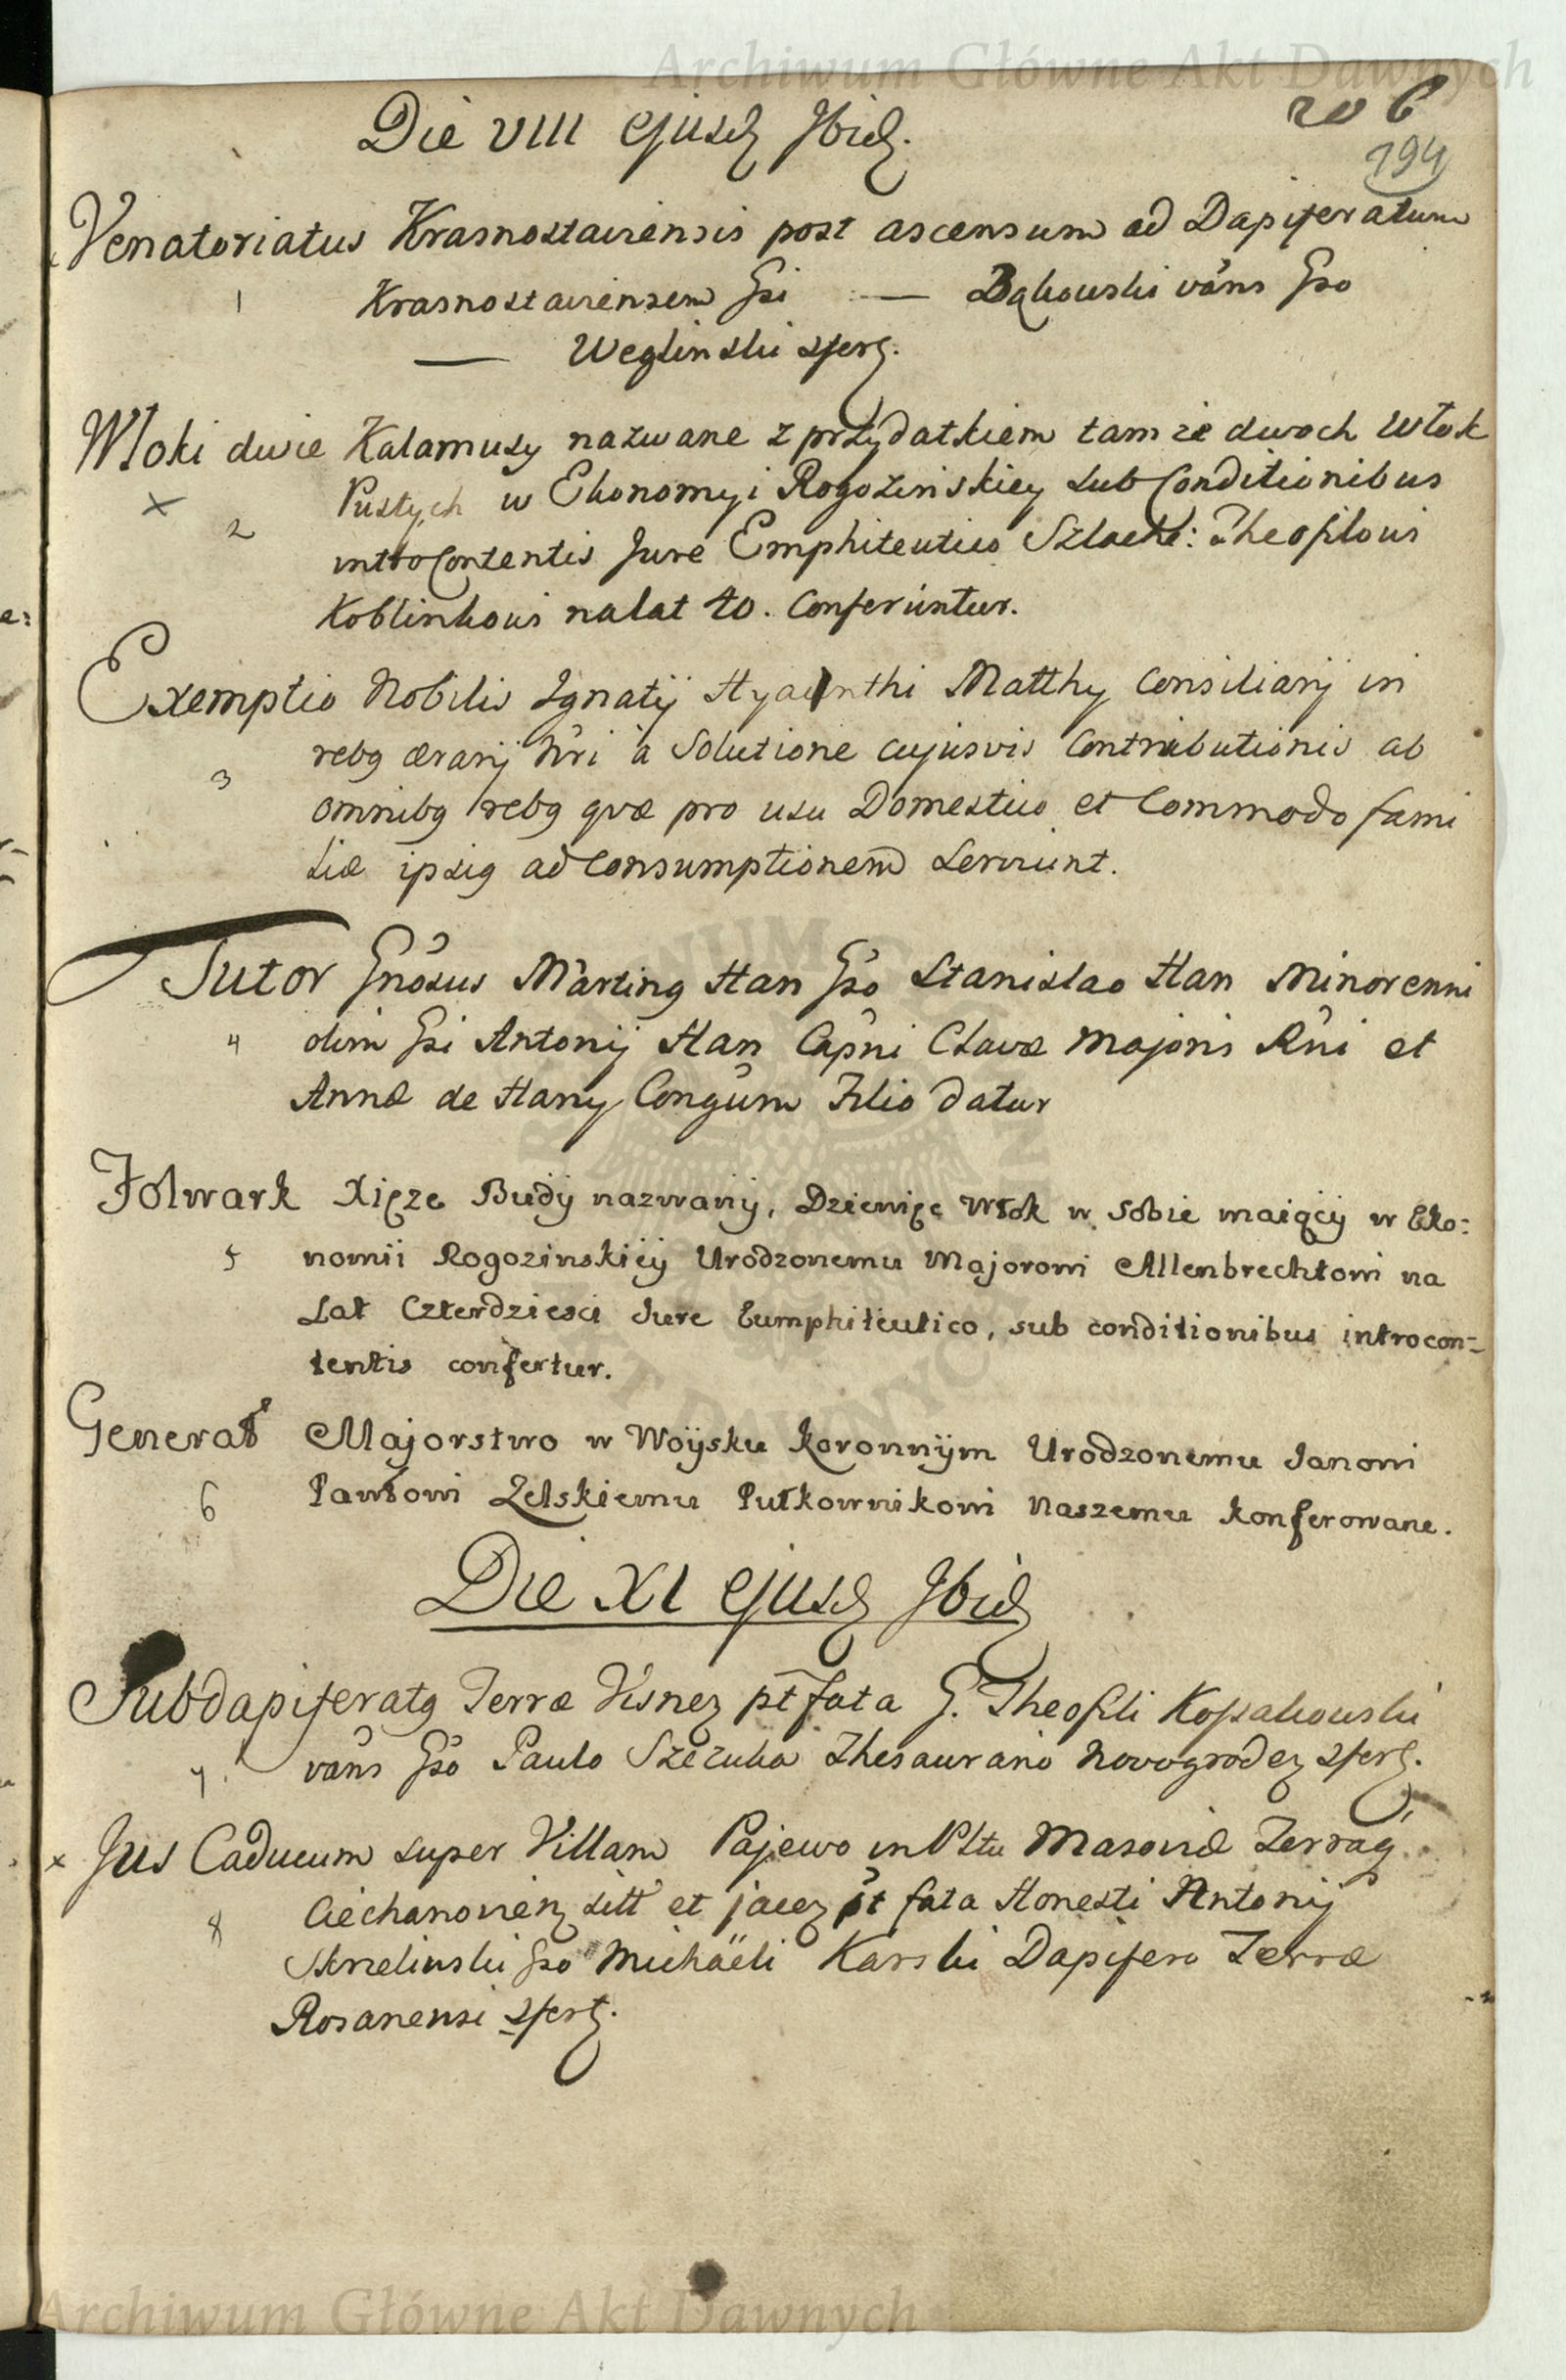 Archiwum Główne Akt Dawnych
206
194
Die VIII ejusd Ibid.
Venatoriatus Krasnostaviensis post ascensum ad Dapiferatum
1 Krasnostaviensem Gsi — Bąkowski vãns Gso
— Weglinski Sfert.
Włoki dwie Kalamusy nazwane z przydatkiem tamże dwoch Włok
x 2 Pustych w Ekonomyi Rogozinskiey sub Conditionibus
introContentis Jure Emphiteutico Szlache: Theofilowi
Koblinkowi na lat 40. Conferuntur.
Exemptio Nobilis Ignatij Hyacinthi Matthy Consiliarij in
3 rebg ærarij Nri à Solutione cujusvis Contributionis ab
omnibg rebg qvæ pro usu Domestico et Commodo fami
liæ ipsig ad Consumptionem serviunt.
Tutor Gnosus Marting Han Gso Stanislao Han Minorenni
4 olim Gsi Antonij Han Capni Clavæ Majoris Rni et
Annæ de Hany Congum Filio datur
Folwark Xięze Budy nazwany, Dziewięc Włok w sobie maiący w Eko:
5 nomii Rogozinskiey Urodzonemu Majorowi Allenbrechtowi na
Lat Czterdziesci Jure Eumphiteutico, sub conditionibus introcon=
tentis confertur.
Generał Majorstwo w Woysku Koronnym Urodzonemu Janowi
6 Pawłowi Zelskiemu Pułkownikowi Naszemu konferowane.
Die XI ejusd Ibid
Subdapiferatg Terræ Visnez pt fata G. Theofili Kossakowski
7. vans Gso Paulo Szczuka Thesaurario Novogrodez Sfert.
x Jus Caducum super Villam Pajewo in Pltu Masoviæ Terrag
8 Ciechanovien sitt et jacez pt fata Honesti Antonij
Strzelinski Gso Michaëli Karski Dapifero Terræ
Rosanensi Sfert.
Archiwum Główne Akt Dawnych